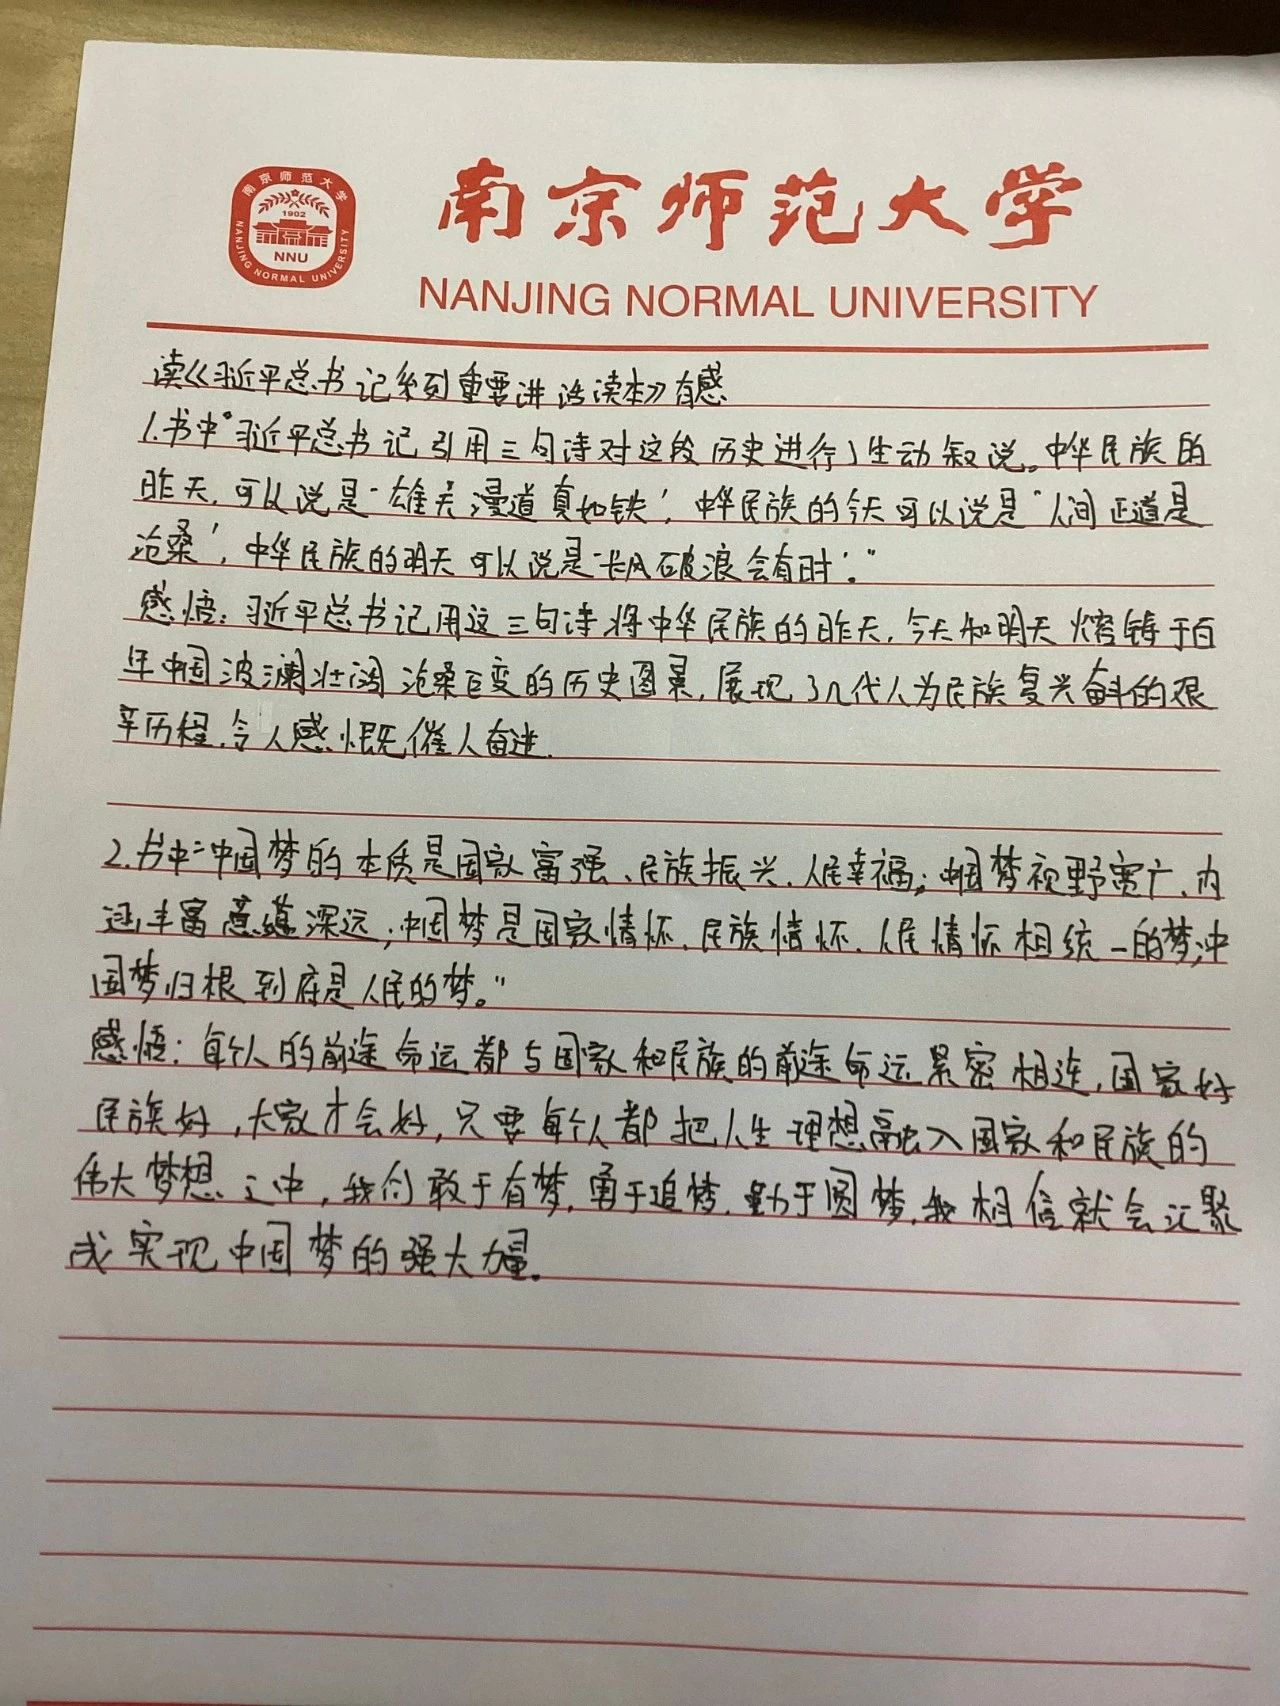 南京师范大学
1902
NNU
NANJING NORMAL UNIVERSITY
南京师范大学
NANJING NORMAL UNIVERSITY
读《习近平总书记系列重要讲话读本》有感
1.书中“习近平总书记引用三句诗对这段历史进行了生动叙说。中华民族的
昨天,可以说是‘雄关漫道真如铁’,中华民族的今天可以说是‘人间正道是
沧桑’,中华民族的明天可以说是‘长风破浪会有时’.”
感悟:习近平总书记用这三句诗,将中华民族的昨天,今天和明天熔铸于百
年中国波澜壮阔沧桑巨变的历史图景,展现了几代人为民族复兴奋斗的艰
辛历程,令人感慨,催人奋进.
2.书中:“中国梦的本质是国家富强、民族振兴、人民幸福;中国梦视野宽广、内
涵丰富意蕴深远;中国梦是国家情怀、民族情怀、人民情怀相统一的梦;中
国梦归根到底是人民的梦。”
感悟:每个人的前途命运都与国家和民族的前途命运紧密相连,国家好
民族好,大家才会好,只要每个人都把人生理想融入国家和民族的
伟大梦想之中,我们敢于有梦,勇于追梦,勤于圆梦,我相信就会汇聚
成实现中国梦的强大力量。